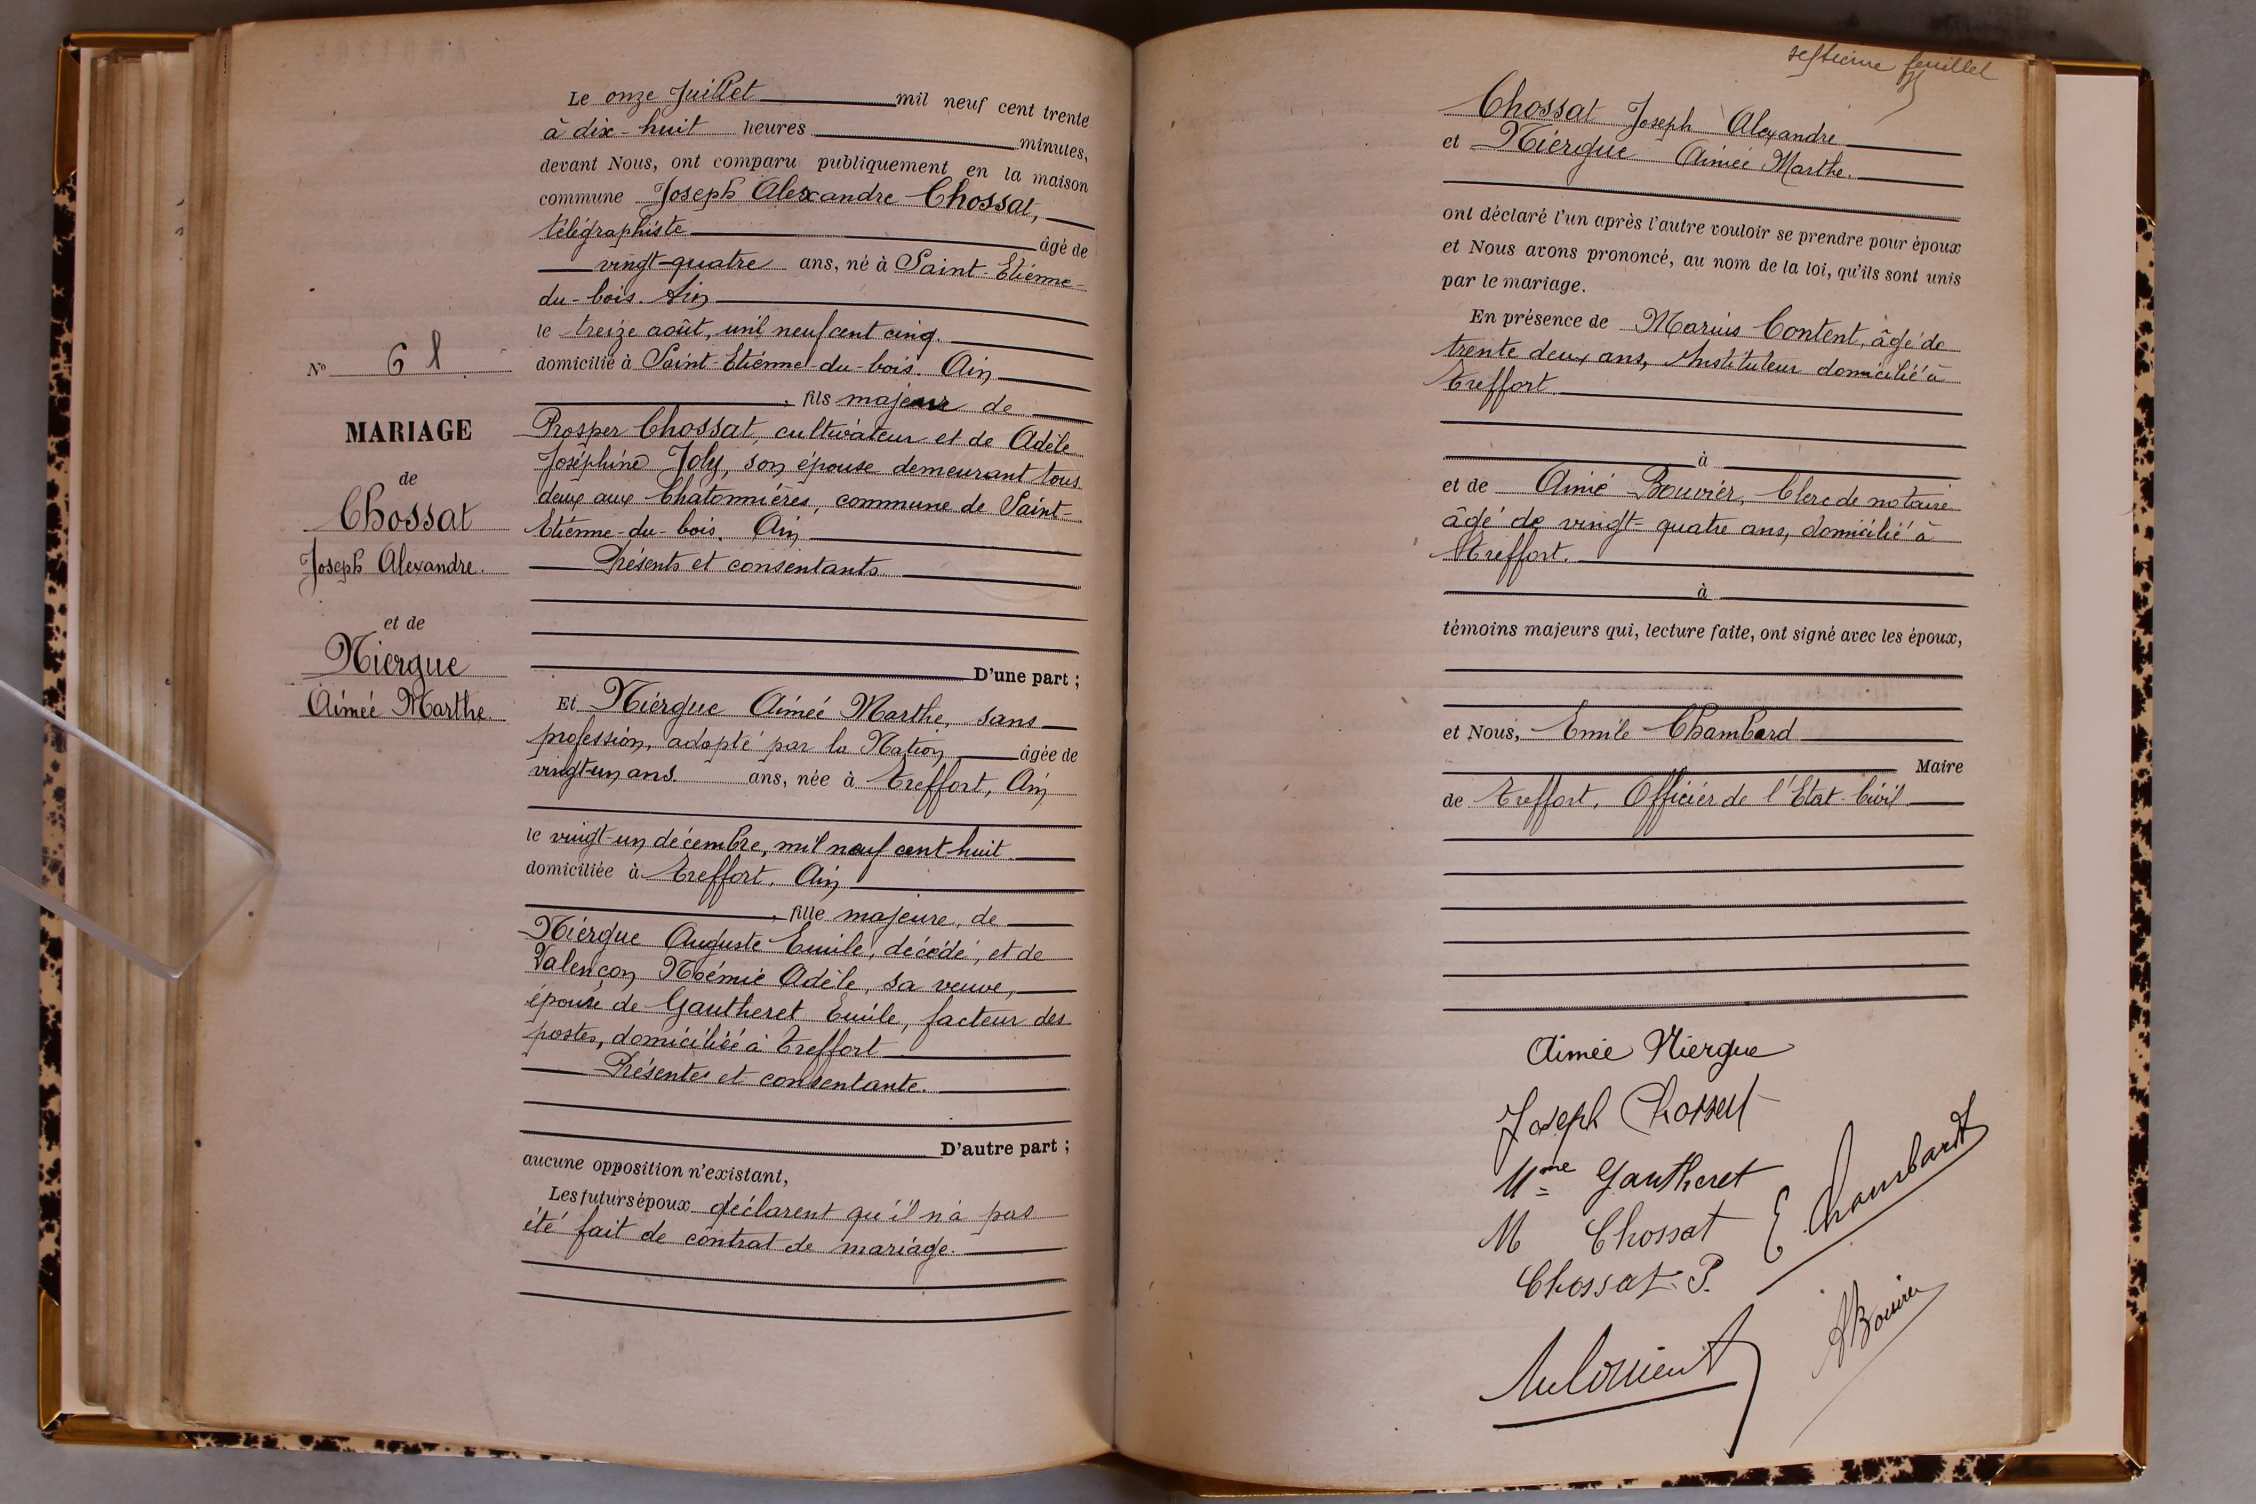 Nº 6
MARIAGE
de
Chossat
Joseph Alexandre.
et de
Niergue
Aimée Marthe.
Le onze Juillet mil neuf cent trente
à dix-huit heures minutes,
devant Nous, ont comparu publiquement en la maison
commune Joseph Alexandre Chossat,
télégraphiste âgé de
vingt-quatre ans, né à Saint-Etienne-
du-bois. Ain
le treize août, mil neuf cent cinq.
domicilié à Saint-Etienne-du-bois. Ain
, fils majeur de
Prosper Chossat, cultivateur et de Adèle
Joséphine Joly, son épouse demeurant tous
deux aux Chatonnières, commune de Saint-
Etienne-du-bois. Ain
Présents et consentants
D'une part ;
Et Niérgue Aimée Marthe, sans
profession, adopté par la Nation âgée de
vingt-un ans. ans, née à Treffort, Ain
le vingt-un décembre, mil neuf cent huit.
domiciliée à Treffort. Ain
, fille majeure, de
Niérgue Auguste Emile, décédé, et de
Valençon Noémie Adèle, sa veuve,
épouse de Gautheret Emile, facteur des
postes, domiciliée à Treffort
Présente et consentante.
D'autre part ;
aucune opposition n'existant,
Les futurs époux déclarent qu'il n'a pas
été fait de contrat de mariage.
septième feuillet
Chossat Joseph Alexandre
et Niérgue Aimée Marthe.
ont déclaré l'un après l'autre vouloir se prendre pour époux
et Nous avons prononcé, au nom de la loi, qu'ils sont unis
par le mariage.
En présence de Marius Content, âgé de
trente deux ans, Instituteur domicilié à
Treffort
à
et de Aimé Bouvier, Clerc de notaire
âgé de vingt-quatre ans, domicilié à
Treffort.
à
témoins majeurs qui, lecture faite, ont signé avec les époux,
et Nous, Emile Chambard
Maire
de Treffort, Officier de l'Etat-Civil
Aimée Niergue
Joseph Chossat
Mme Gautheret
M Chossat
E. Chambard
Chossat P.
ABouvier